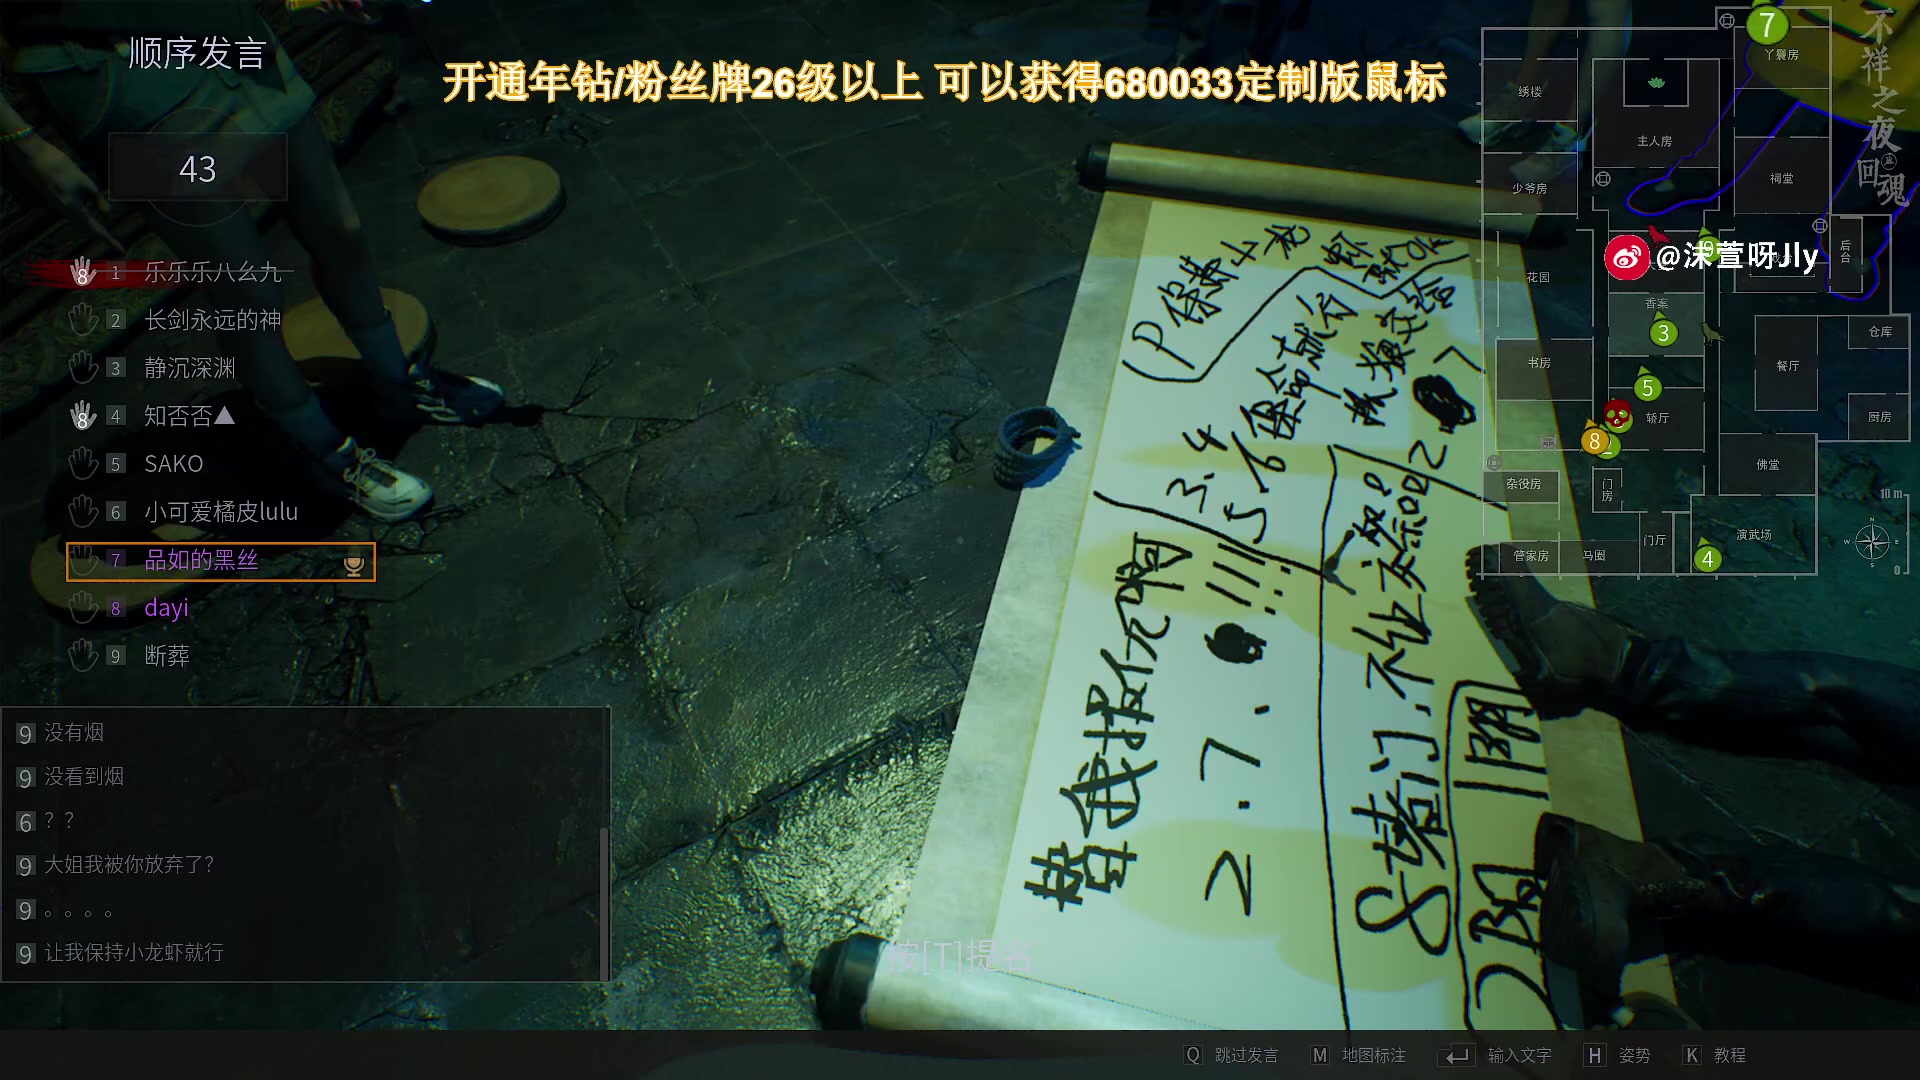 顺序发言
43
开通年钻/粉丝牌26级以上 可以获得680033定制版鼠标
8 1 乐乐乐八幺九
2 长剑永远的神
3 静沉深渊
8 4 知否否▲
5 SAKO
6 小可爱橘皮lulu
7 品如的黑丝
8 dayi
9 断葬
9 没有烟
9 没看到烟
6 ？？
9 大姐我被你放弃了？
9 。。。。
9 让我保持小龙虾就行
保命就行
3.4
5
替我报仇啊
!!!!
2.7.
8堵门,
按[T]提名
不祥之夜
回魂
7
丫鬟房
绣楼
主人房
祠堂
少爷房
后台
@沫萱呀Jly
花园
香案
3
仓库
书房
5
餐厅
轿厅
厨房
8
佛堂
杂役房
门房
10 m
演武场
门厅
管家房
马圈
4
N
W
E
S
0
Q 跳过发言
M 地图标注
输入文字
H 姿势
K 教程